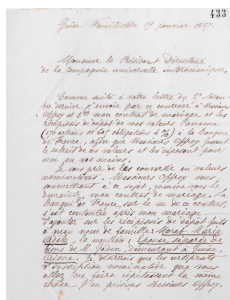 433
Guise, Familistère 17 janvier 1887
Monsieur le Président Directeur
de la Compagnie universelle interocéanique.
Comme suite à votre lettre du
dernier, j'envoie par ce courrier à Messieurs
Offroy et Cie mon contrat de mariage et les
récépissés de dépôt de mes valeurs Panama
à la banque
de France, afin que Messieurs Offroy fassent
le retrait de ces valeurs et les déposent pour
moi en vos mains.
Je vous prie de les convertir en valeurs
nominatives. Messieurs Offroy vous
remettront à ce sujet, comme vous le
demandez, mon contrat de mariage. La
Banque de France, sur le vu de ce contrat
s'est contentée après mon mariage
d'ajouter sur les récépissés de dépôt faits
à mon nom de famille: Moret Marie
Adèle, la mention: Epouse séparée de
biens de M. Godin, demeurant à Guise
Aisne. Je désirerais que les certificats
d'inscription nominative que vous
allez me faire répétassent la même
chose. J'en préviens Messieurs Offroy.